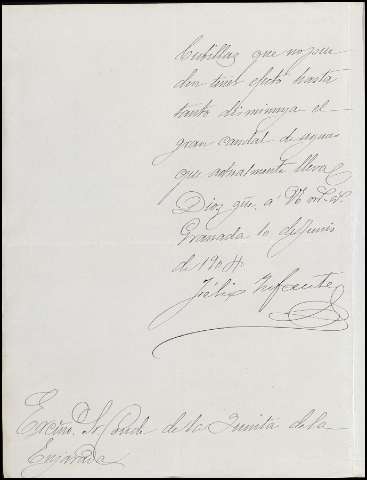 Cubillas que no pue
den tener efecto hasta
tanto disminuya el
gran caudal de aguas
que actualmente lleva
Dios gue. a V. 
Granada 10 de Junio
de 1904.
Félix Infante
Excmo. Sr. Conde de la Quinta de la
Enjarada